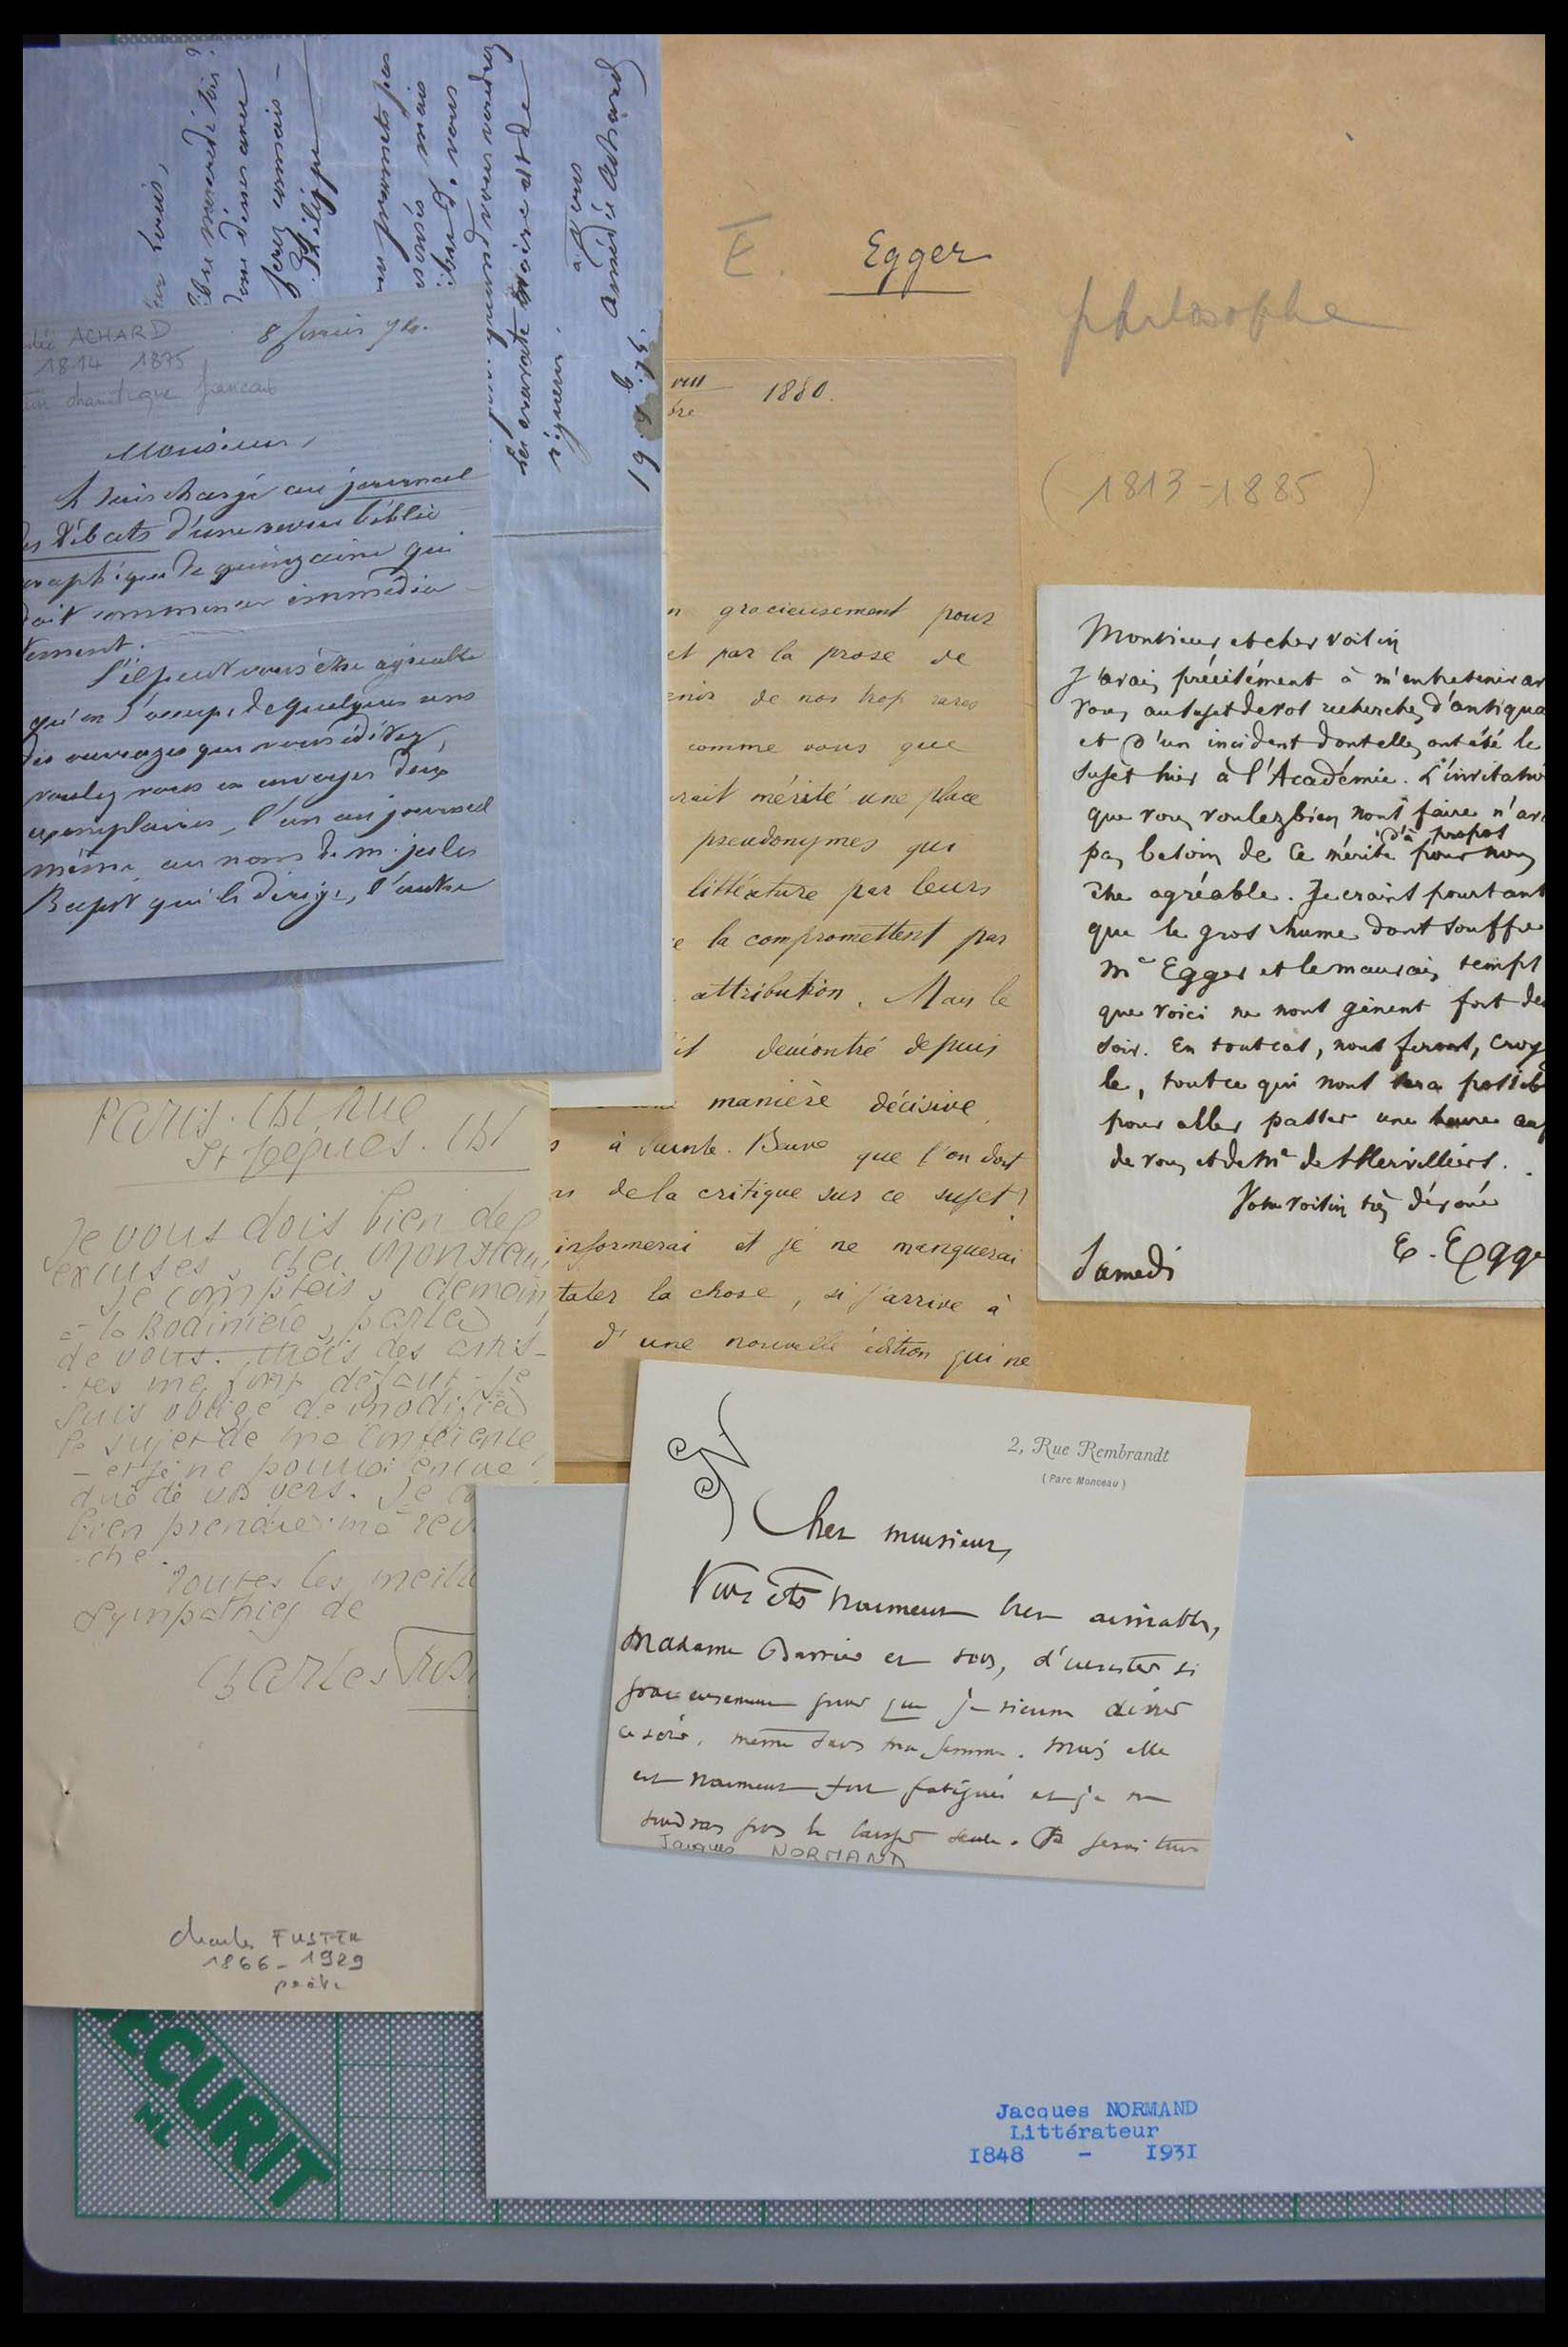 cher Louis,
libre mercredi soir?
donc dîner avec
Philippe
promets pas
mais
vous
quand vous voudrez
cravate noire et de
rigueur.
à vous
Amédée Achard
19. 9b. 75.
ACHARD
1814 1875
dramatique français
8 février 74.
Monsieur,
Je suis chargé au journal
des Débats d'une revue biblio
graphique de quinzaine qui
doit commencer immédia
tement.
S'il peut vous être agréable
qu'on s'occupe de quelques uns
des ouvrages que vous éditez,
voulez vous en envoyer deux
exemplaires, l'un au journal
même, au nom de m. jules
Bapst qui le dirige, l'autre
E. Egger
philosophe
(1813-1885)
1880.
gracieusement pour
et par la prose de
de nos trop rares
comme vous que
mérité une place
pseudonymes qui
littérature par leurs
la compromettent par
attribution. Mais le
démontré depuis
manière décisive
à Sainte-Beuve que l'on doit
de la critique sur ce sujet!
informerai et je ne manquerai
la chose, si j'arrive à
d'une nouvelle édition qui ne
Monsieur et cher voisin
J'avais précisément à m'entretenir av
vous au sujet de vos recherches d'antiqua
et d'un incident dont elles ont été le
sujet hier à l'Académie. L'invitatio
que vous voulez bien nous faire n'av
pas besoin de ce mérite d'à propos pour nous
être agréable. Je crains pourtant
que le gros rhume dont souffre
Me Egger et le mauvais temps
que voici ne nous gênent fort de
soir. En tout cas, nous ferons, croy
le, tout ce qui nous sera possib
pour aller passer une heure aup
de vous et de Me de Hervilliers.
Votre voisin très dévoué
E. Egge
Samedi
Paris. 151 Rue
St Jacques. 151
Je vous dois bien des
excuses, cher Monsieur,
Je comptais, demain
à la Bodinière, parler
de vous. Mais des artis-
tes me font défaut. Je
suis obligé de modifier
le sujet de ma conférence
- et je ne pourrai
de vos vers. Je
bien prendre ma rev
che.
Toutes les meille
sympathies de
Charles
Charles FUSTER
1866-1929
poète
2, Rue Rembrandt
(Parc Monceau)
Cher monsieur,
Vous êtes vraiment bien aimables,
Madame Barrier et vous, d'insister si
gracieusement pour que je vienne dîner
ce soir, même sans ma femme. Mais elle
est vraiment fort fatiguée et je ne
voudrais pas la laisser seule. Je serai
Jacques NORMAND
SECURIT
NL
Jacques NORMAND
Littérateur
1848 - 1931